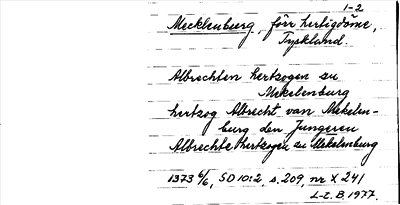 1-2
Mecklenburg, förr hertigdöme,
Tyskland.
Albrechten hertzogen zu
Mekelenburg
hertzog Albrecht van Mekelen-
burg den Jungeren
Albrechte hertzogen zu Mekelenburg
1373 6/6, SD 10:2, s. 209, nr X 241
L-E. B. 1977.